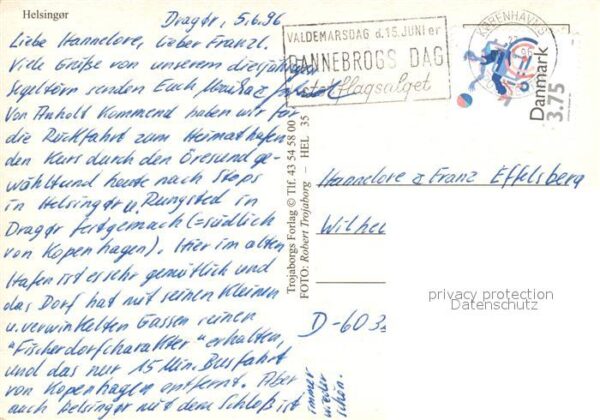 Helsingør
Dragør, 5.6.96
Liebe Hannelore, lieber Franzl.
Viele Grüße von unserem diesjährigen
Segeltörn senden Euch
Von Anholt kommend haben wir für
die Rückfahrt zum Heimathafen
den Kurs durch den Öresund ge-
wählt und heute nach Stops
in Helsingør u. Rungsted in
Dragør festgemacht (=südlich
von Kopenhagen). Hier im alten
Hafen ist es sehr gemütlich und
das Dorf hat mit seinen kleinen
u. verwinkelten Gassen seinen
"Fischerdorfcharakter" erhalten,
und das nur 15 Min. Busfahrt
von Kopenhagen entfernt. Aber
auch Helsingør mit dem Schloß ist
immer
wieder
schön.
Trojaborgs Forlag © Tlf. 43 54 58 00
FOTO: Robert Trojaborg – HEL 35
VALDEMARSDAG d. 15. JUNI er
DANNEBROGS DAG
støt flagsalget
KØBENHAVNS
Danmark
3.75
Hannelore & Franz Effelsberg
Wilhel
D-603
privacy protection
Datenschutz